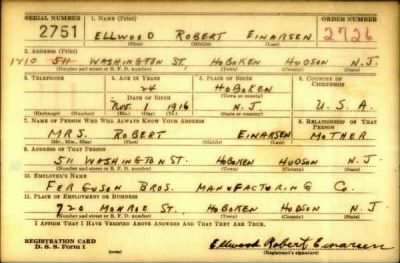 SERIAL NUMBER 1. NAME (Print) ORDER NUMBER
2751 ELLWOOD ROBERT EINARSEN 2726
(First) (Middle) (Last)
2. ADDRESS (Print)
1710 511 WASHINGTON ST, HOBOKEN HUDSON N.J.
(Number and street or R. F. D. number) (Town) (County) (State)
3. TELEPHONE 4. AGE IN YEARS 5. PLACE OF BIRTH 6. COUNTRY OF CITIZENSHIP
24 HOBOKEN
DATE OF BIRTH (Town or county)
NOV. 1916 N.J. U.S.A.
(Exchange) (Number) (Mo.) (Day) (Yr.) (State or country)
7. NAME OF PERSON WHO WILL ALWAYS KNOW YOUR ADDRESS 8. RELATIONSHIP OF THAT PERSON
MRS. ROBERT EINARSEN MOTHER
(Mr., Mrs., Miss) (First) (Middle) (Last)
9. ADDRESS OF THAT PERSON
511 WASHINGTON ST. HOBOKEN HUDSON N.J.
(Number and street or R. F. D. number) (Town) (County) (State)
10. EMPLOYER'S NAME
FERGUSON BROS. MANUFACTURING CO.
11. PLACE OF EMPLOYMENT OR BUSINESS
720 MONROE ST., HOBOKEN HUDSON N.J.
(Number and street or R. F. D. number) (Town) (County) (State)
I AFFIRM THAT I HAVE VERIFIED ABOVE ANSWERS AND THAT THEY ARE TRUE.
REGISTRATION CARD Ellwood Robert Einarsen
D. S. S. Form 1 (over) (Registrant's signature)